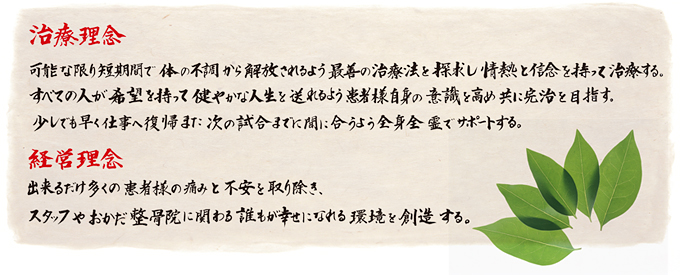 治療理念
可能な限り短期間で体の不調から解放されるよう最善の治療法を探求し情熱と信念を持って治療する。
すべての人が希望を持って健やかな人生を送れるよう患者様自身の意識を高め共に完治を目指す。
少しでも早く仕事へ復帰また次の試合までに間に合うよう全身全霊でサポートする。
経営理念
出来るだけ多くの患者様の痛みと不安を取り除き、
スタッフやおかだ整骨院に関わる誰もが幸せになれる環境を創造する。